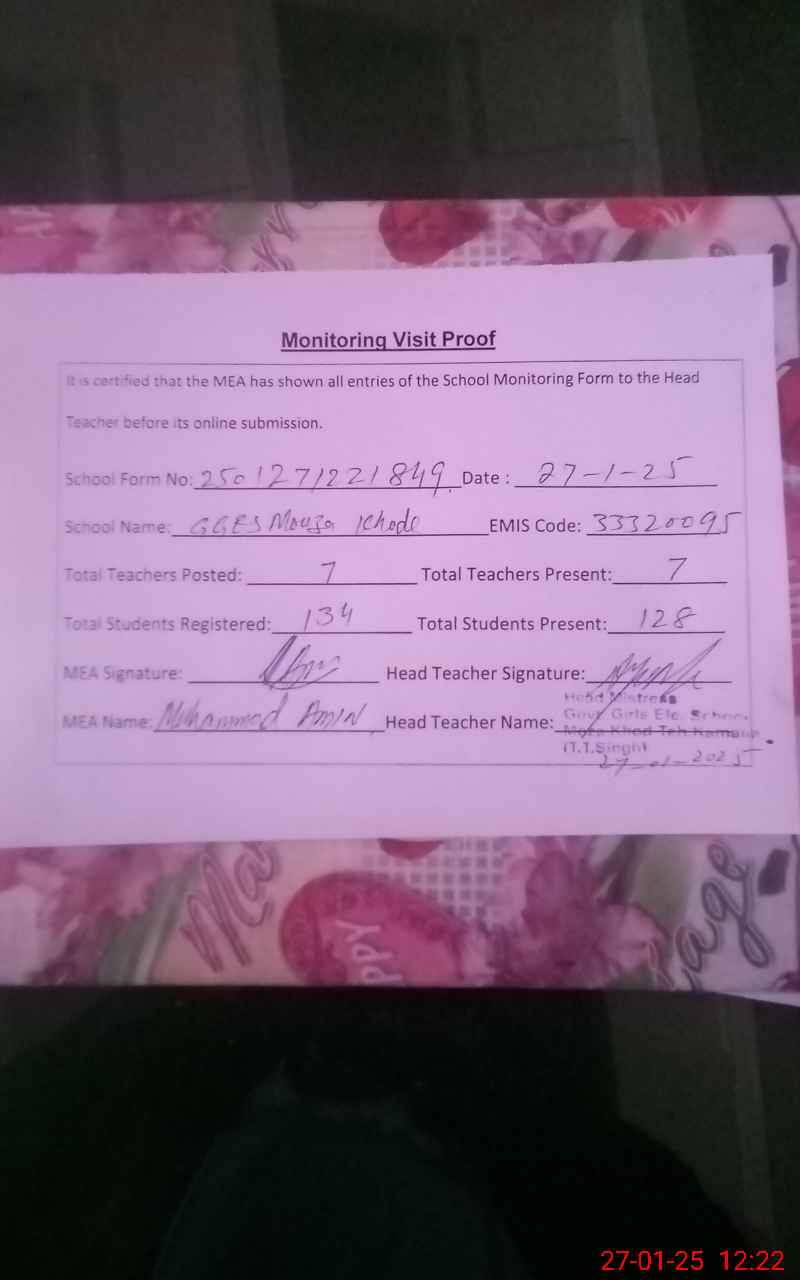 Monitoring Visit Proof
It is certified that the MEA has shown all entries of the School Monitoring Form to the Head
Teacher before its online submission.
School Form No: 2501271221849 Date : 27-1-25
School Name: GGES Mouza Khode EMIS Code: 33320095
Total Teachers Posted: 7 Total Teachers Present: 7
Total Students Registered: 134 Total Students Present: 128
MEA Signature: Head Teacher Signature:
MEA Name: Muhammad Amin Head Teacher Name:
Head Mistress
Govt Girls Ele. School
Moza Khod Teh Kamalia
(T.T.Singh)
27-01-2025
Ma
PPY
age
27-01-25 12:22